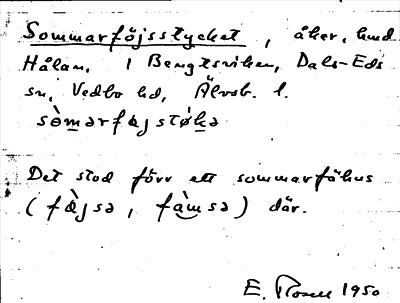 Sommarföjsstycket, åker, hmd
Hålan, 1 Bengtsviken, Dals-Eds
sn, Vedbo hd, Älvsb. l.
sòmərføjstøkə
Det stod förr ett sommarfähus
(fæ̀jsə, fàmsə) där.
E. Rosell 1950